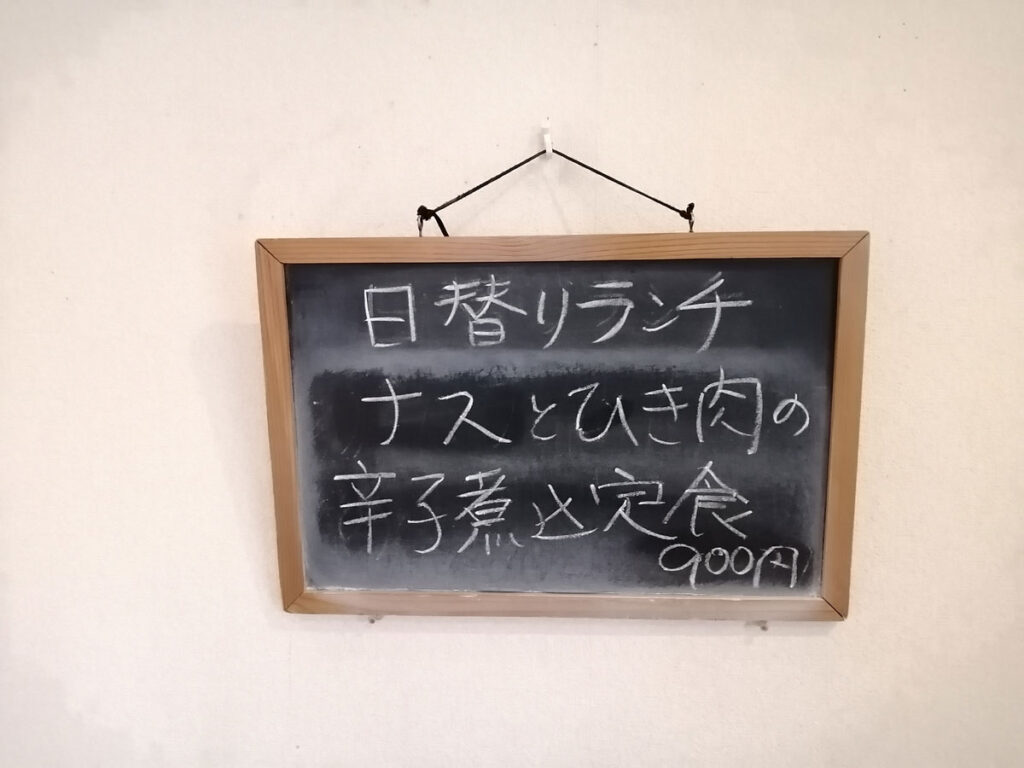 日替りランチ
ナスとひき肉の
辛子煮込定食
900円